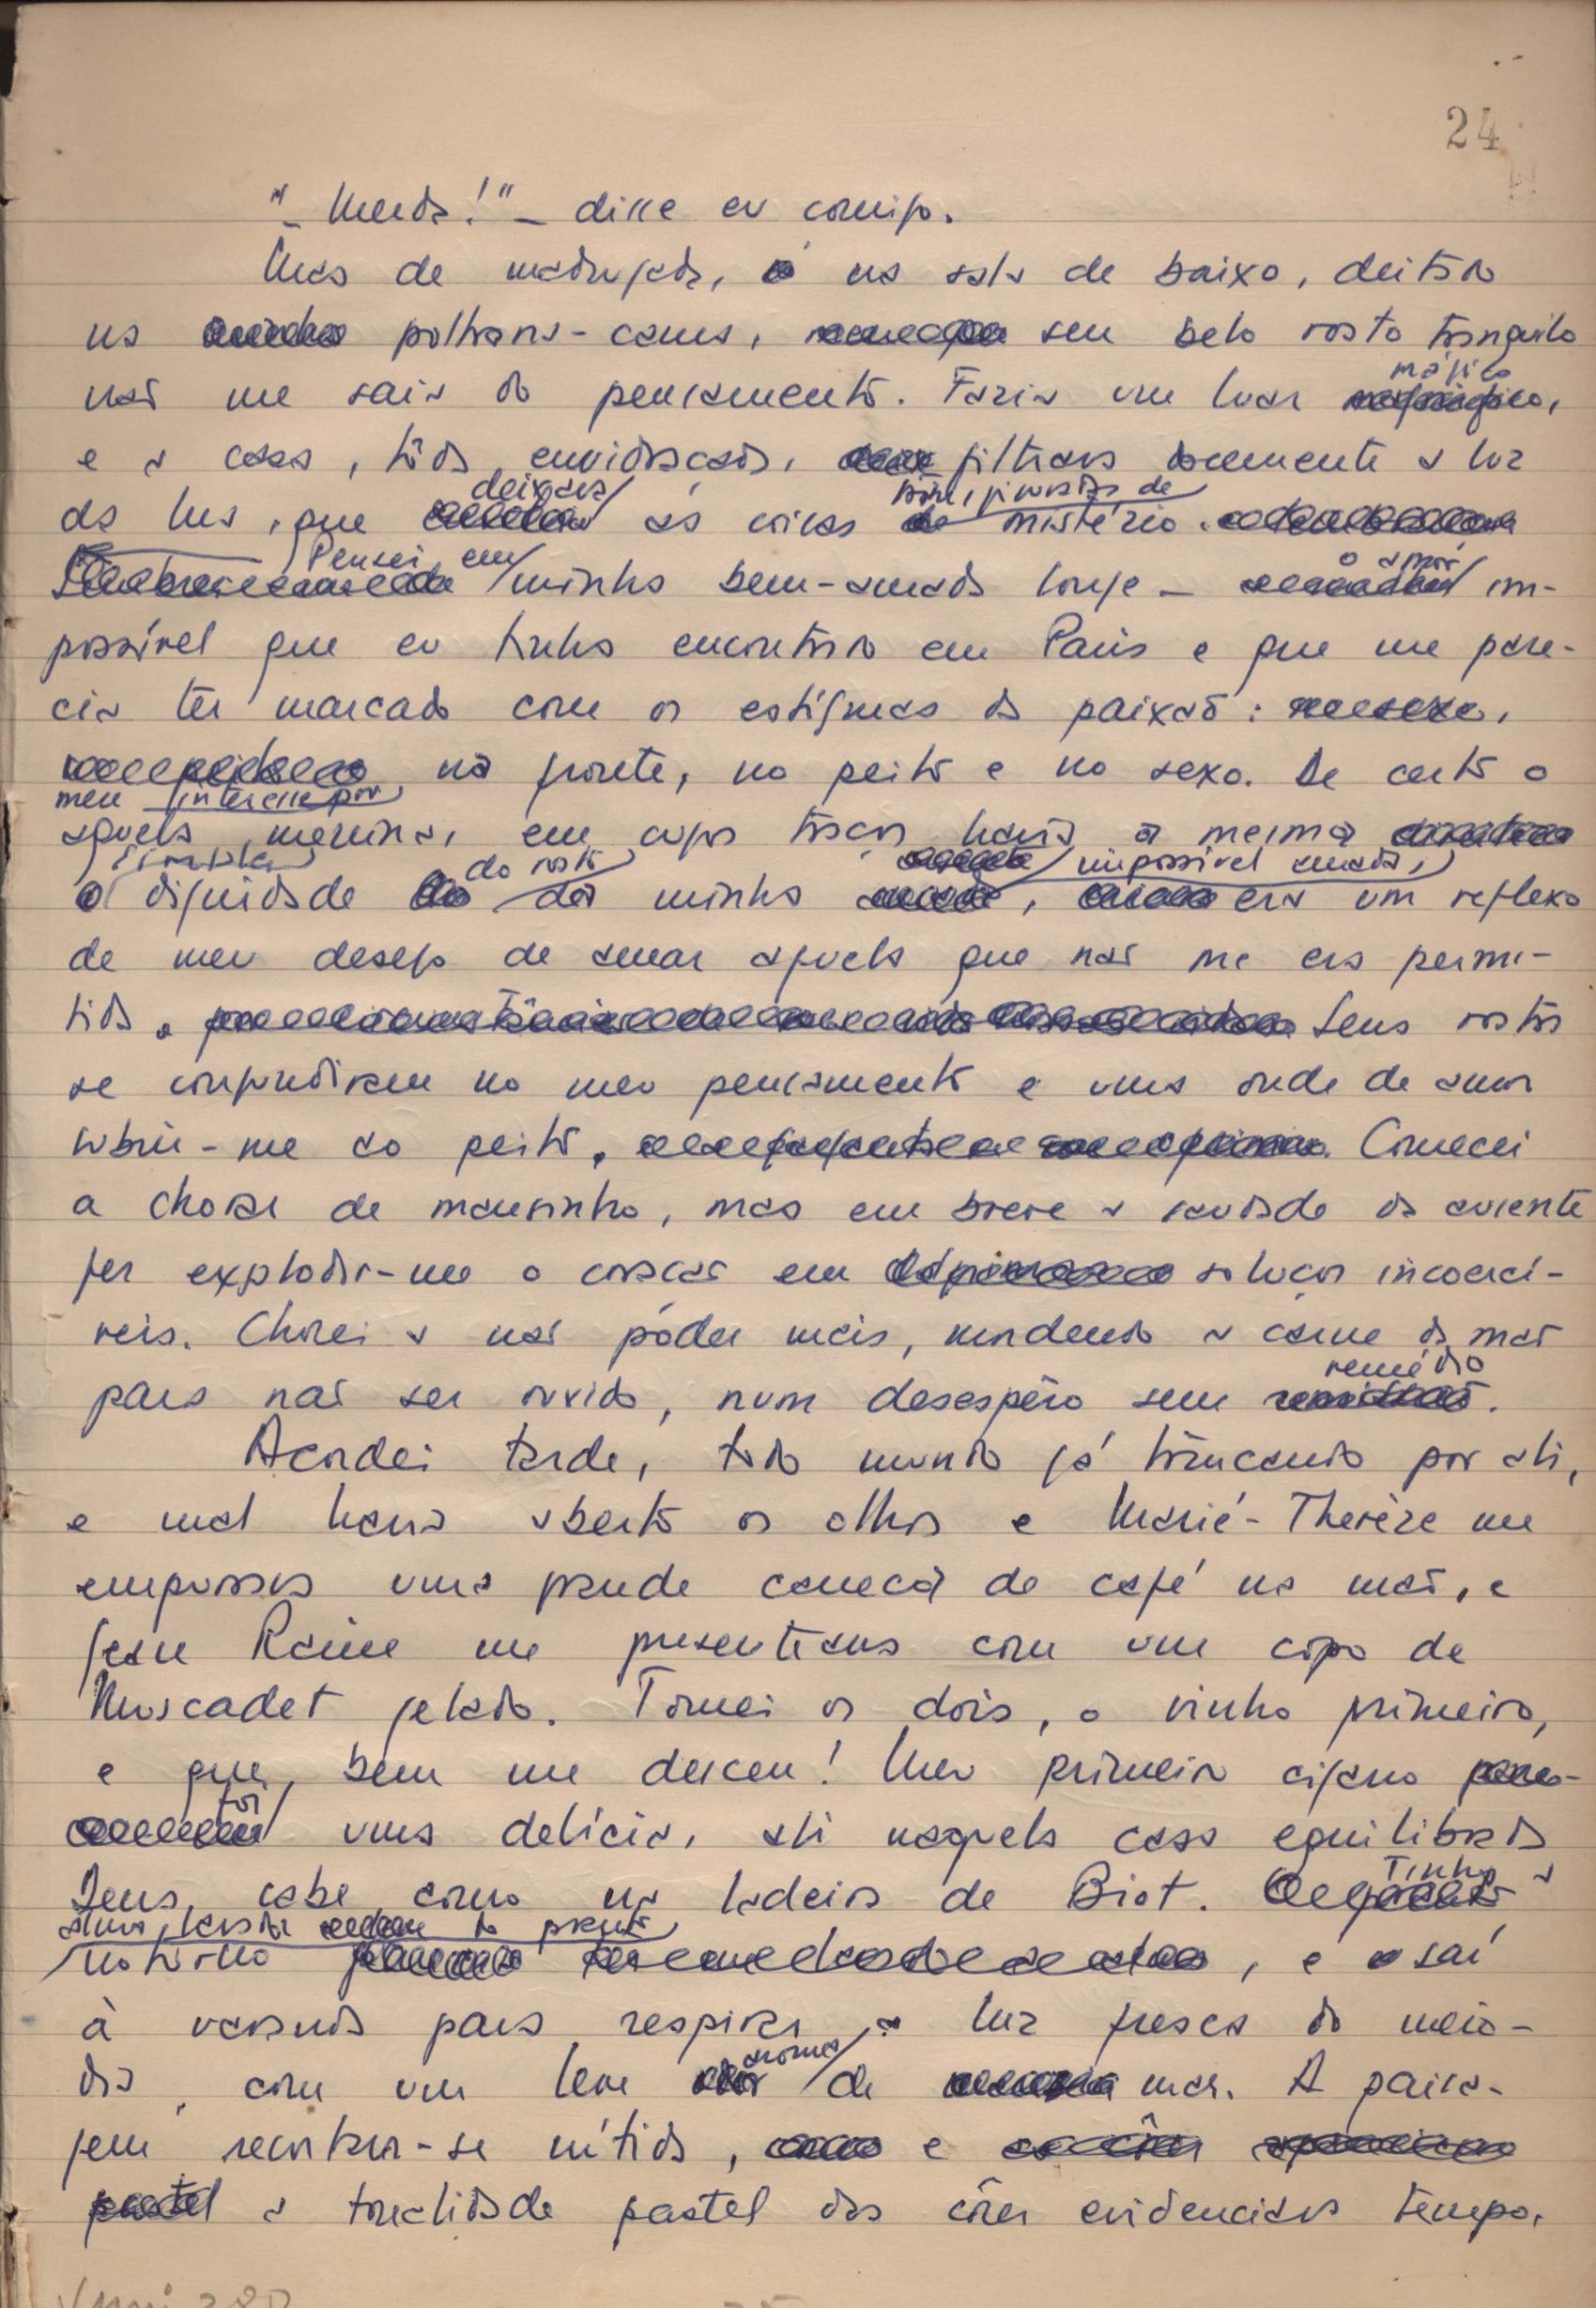 24
"— Merda!" — disse eu comigo.
Mas de madrugada, na sala de baixo, deitado
na poltrona-cama, seu belo rosto tranquilo
mágico
não me saía do pensamento. Fazia um luar
e a casa, tôda envidraçada, filtrava docemente a luz
deixava de
da lua, que as coisas mistério.
Pensei em o amor
minha bem-amada longe — im-
possível que eu tinha encontrado em Paris e que me pare-
cia ter marcado com os estígmas da paixão:
na fronte, no peito e no sexo. De certo o
meu interesse por
aquela menina, em cujos traços havia a mesma
simples do rosto impossível amada,
dignidade da minha , era um reflexo
de meu desejo de amar aquela que não me era permi-
tida. Seus rostos
se confundiram no meu pensamento e uma onda de amor
subiu-me ao peito. Comecei
a chorar de mansinho, mas em breve a saudade da ausente
fez explodir-me o coração em soluços incoercí-
veis. Chorei a não poder mais, mordendo a carne da mão
remédio
para não ser ouvido, num desespêro sem .
Acordei tarde, todo mundo já trincando por ali,
e mal havia aberto os olhos e Marie-Thérèze me
empurrava uma grande caneca de café na mão, e
Jean Raine me presenteava com um copo de
Muscadet gelado. Tomei os dois, o vinho primeiro,
e que bem me desceu! Meu primeiro cigarro
foi
uma delícia, ali naquela casa equilibrada
Tinha a
Deus sabe como na ladeira de Biot.
alma lavada do pranto
noturno , e saí
à varanda para respirar a luz fresca do meio-
aroma
dia, com um leve de mar. A paisa-
gem recortava-se nítida, e
a tonalidade pastel das côres evidenciava tempo,